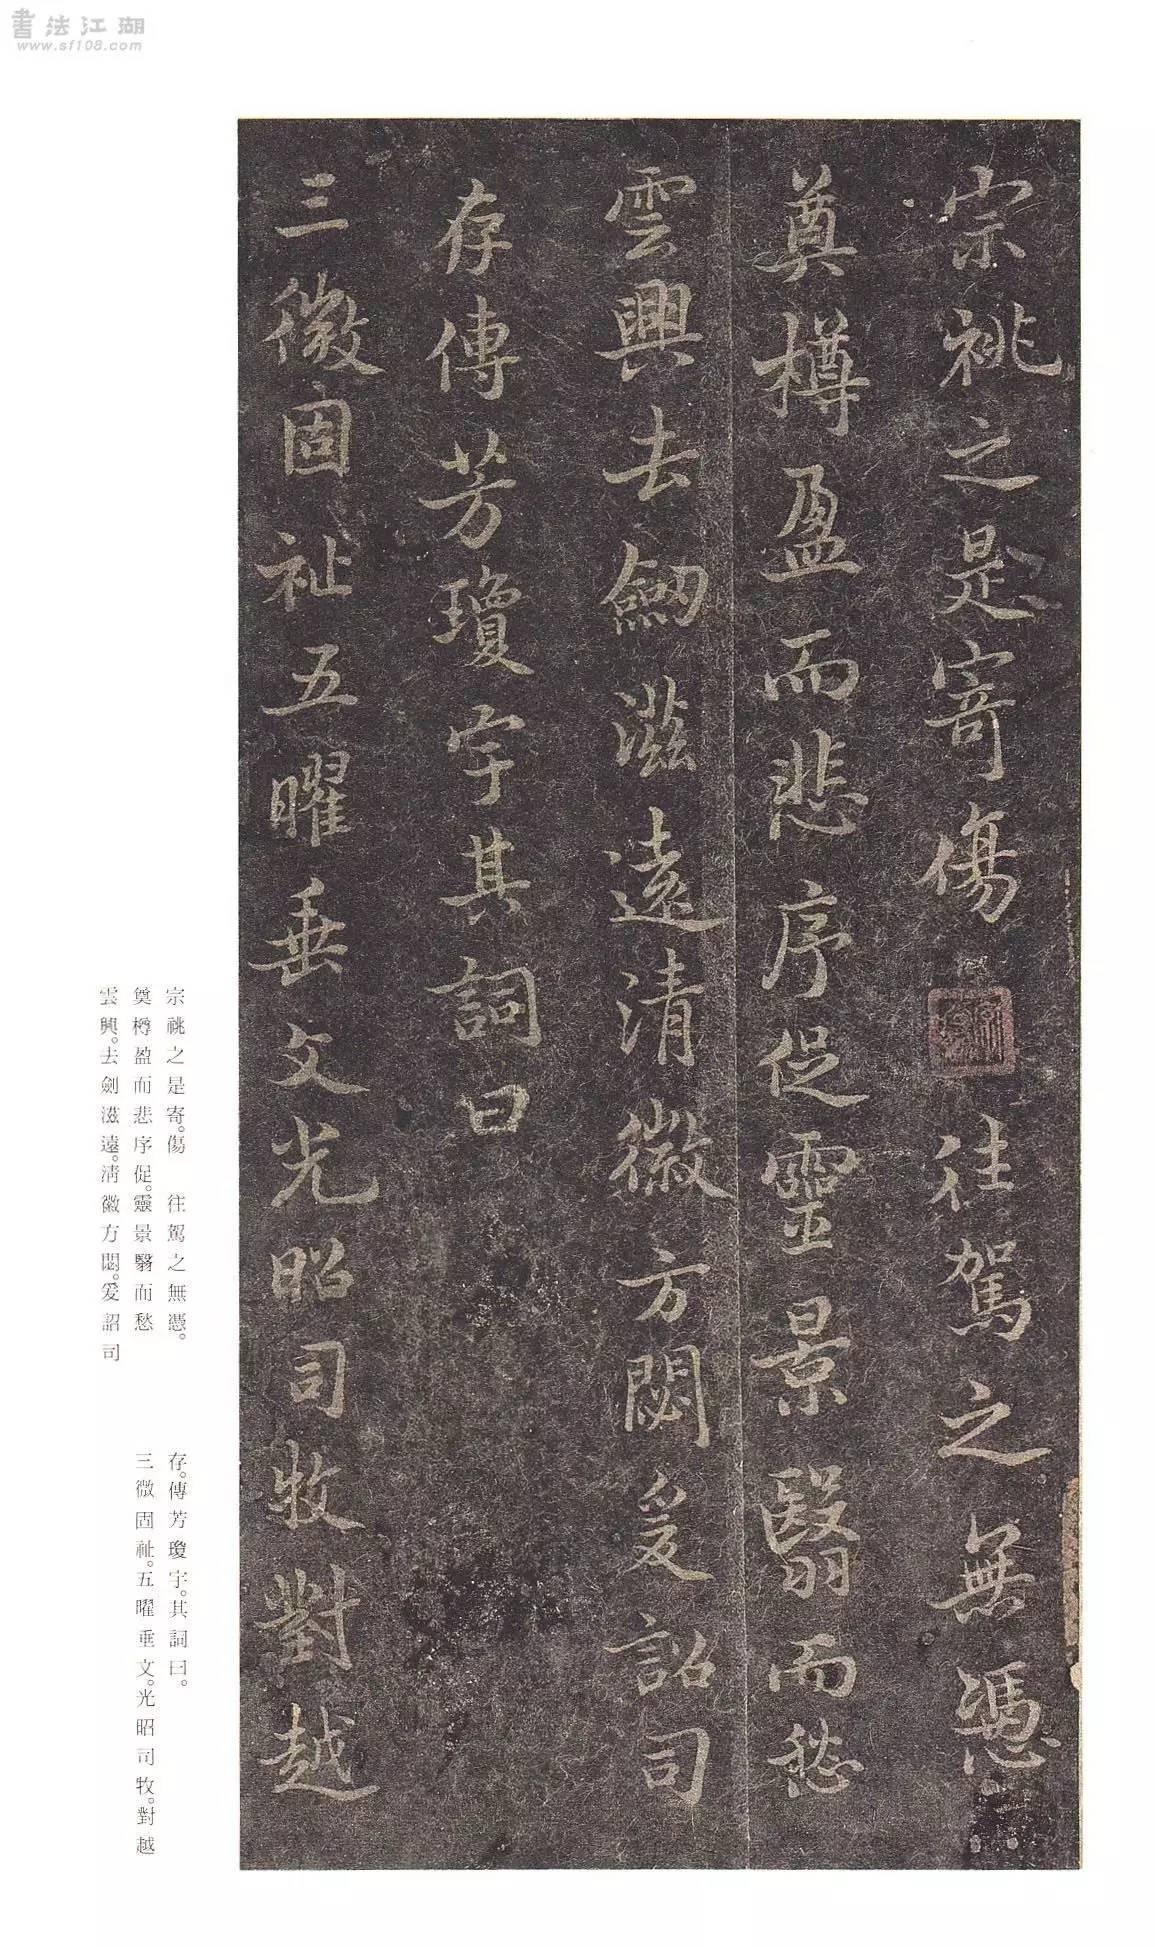 書法江湖
www.sf108.com
宗祧之是寄傷往駕之無憑
奠樽盈而悲序促靈景翳而愁
雲興去劒滋遠清徽方閟爰詔司
存傳芳瓊宇其詞曰
三微固祉五曜垂文光昭司牧對越
宗祧之是寄。傷　往駕之無憑。
奠樽盈而悲序促。靈景翳而愁
雲興。去劍滋遠。清徽方閟。爰詔司
存。傳芳瓊宇。其詞曰。
三微固祉。五曜垂文。光昭司牧。對越